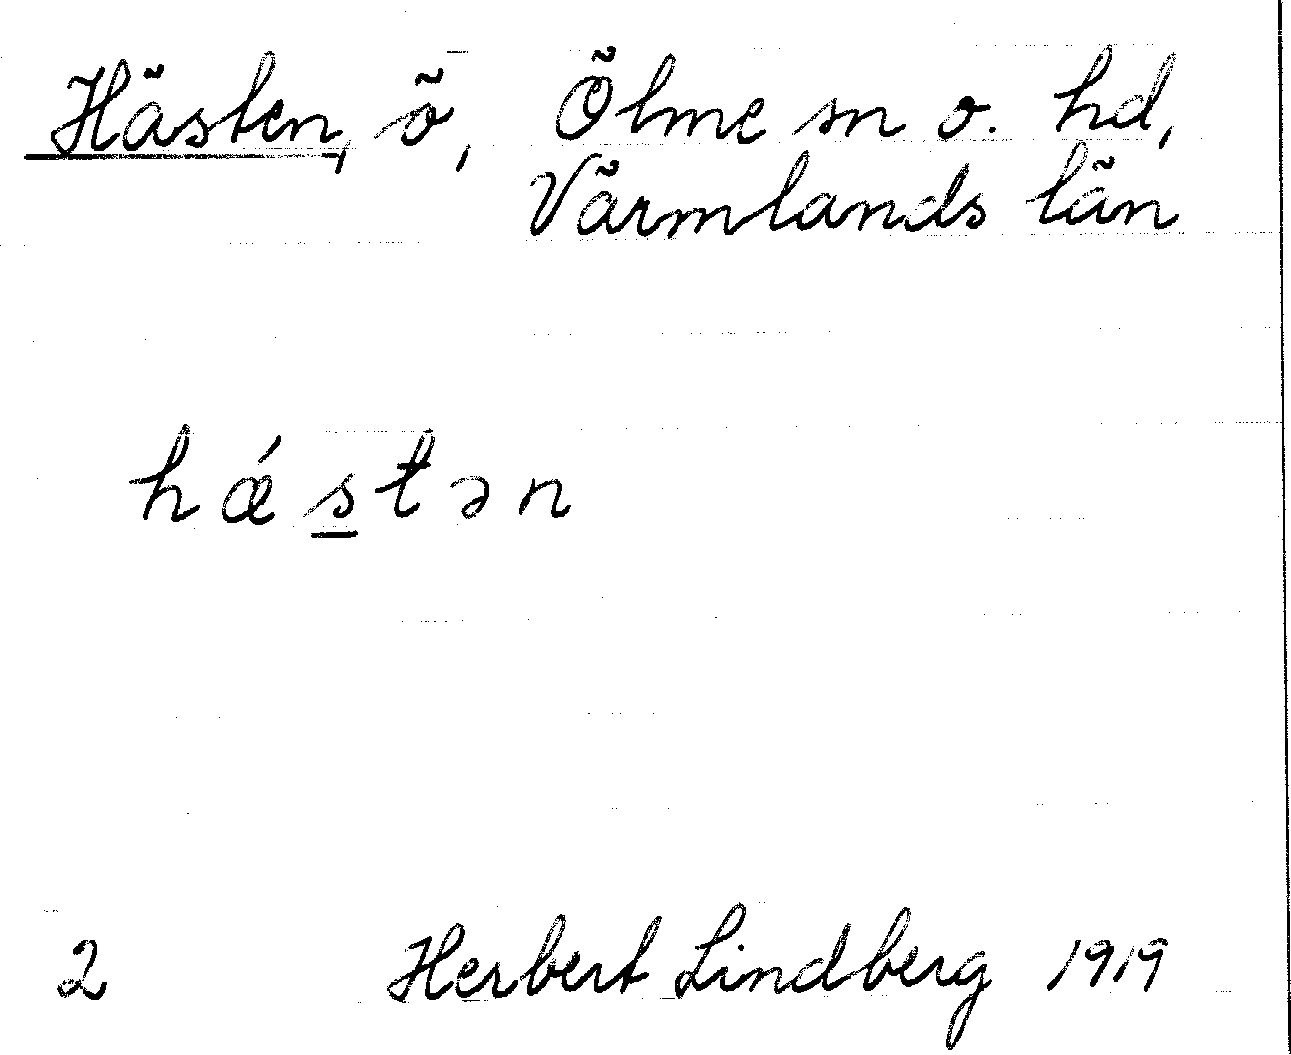 Hästen, ö, Ölme sn o. hd,
Värmlands län
hǽs̲tən
2 Herbert Lindberg 1919